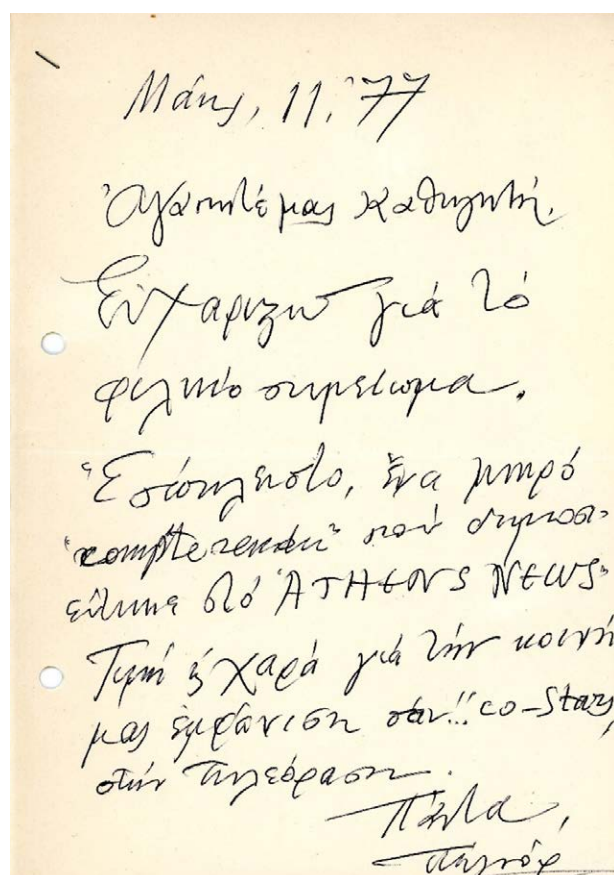 Μάης, 11, '77
Ἀγαπητέ μας καθηγητή,
Εὐχαριστῶ γιά τό
φιλικό σημείωμα.
Ἐσώκλειστο, ἕνα μικρό
"compte rendu" πού δημοσι-
εύτηκε στό "ATHENS NEWS"
Τιμή & χαρά γιά τήν κοινή
μας ἐμφάνιση σάν!! co-stars,
στήν τηλεόραση.
Πάντα,